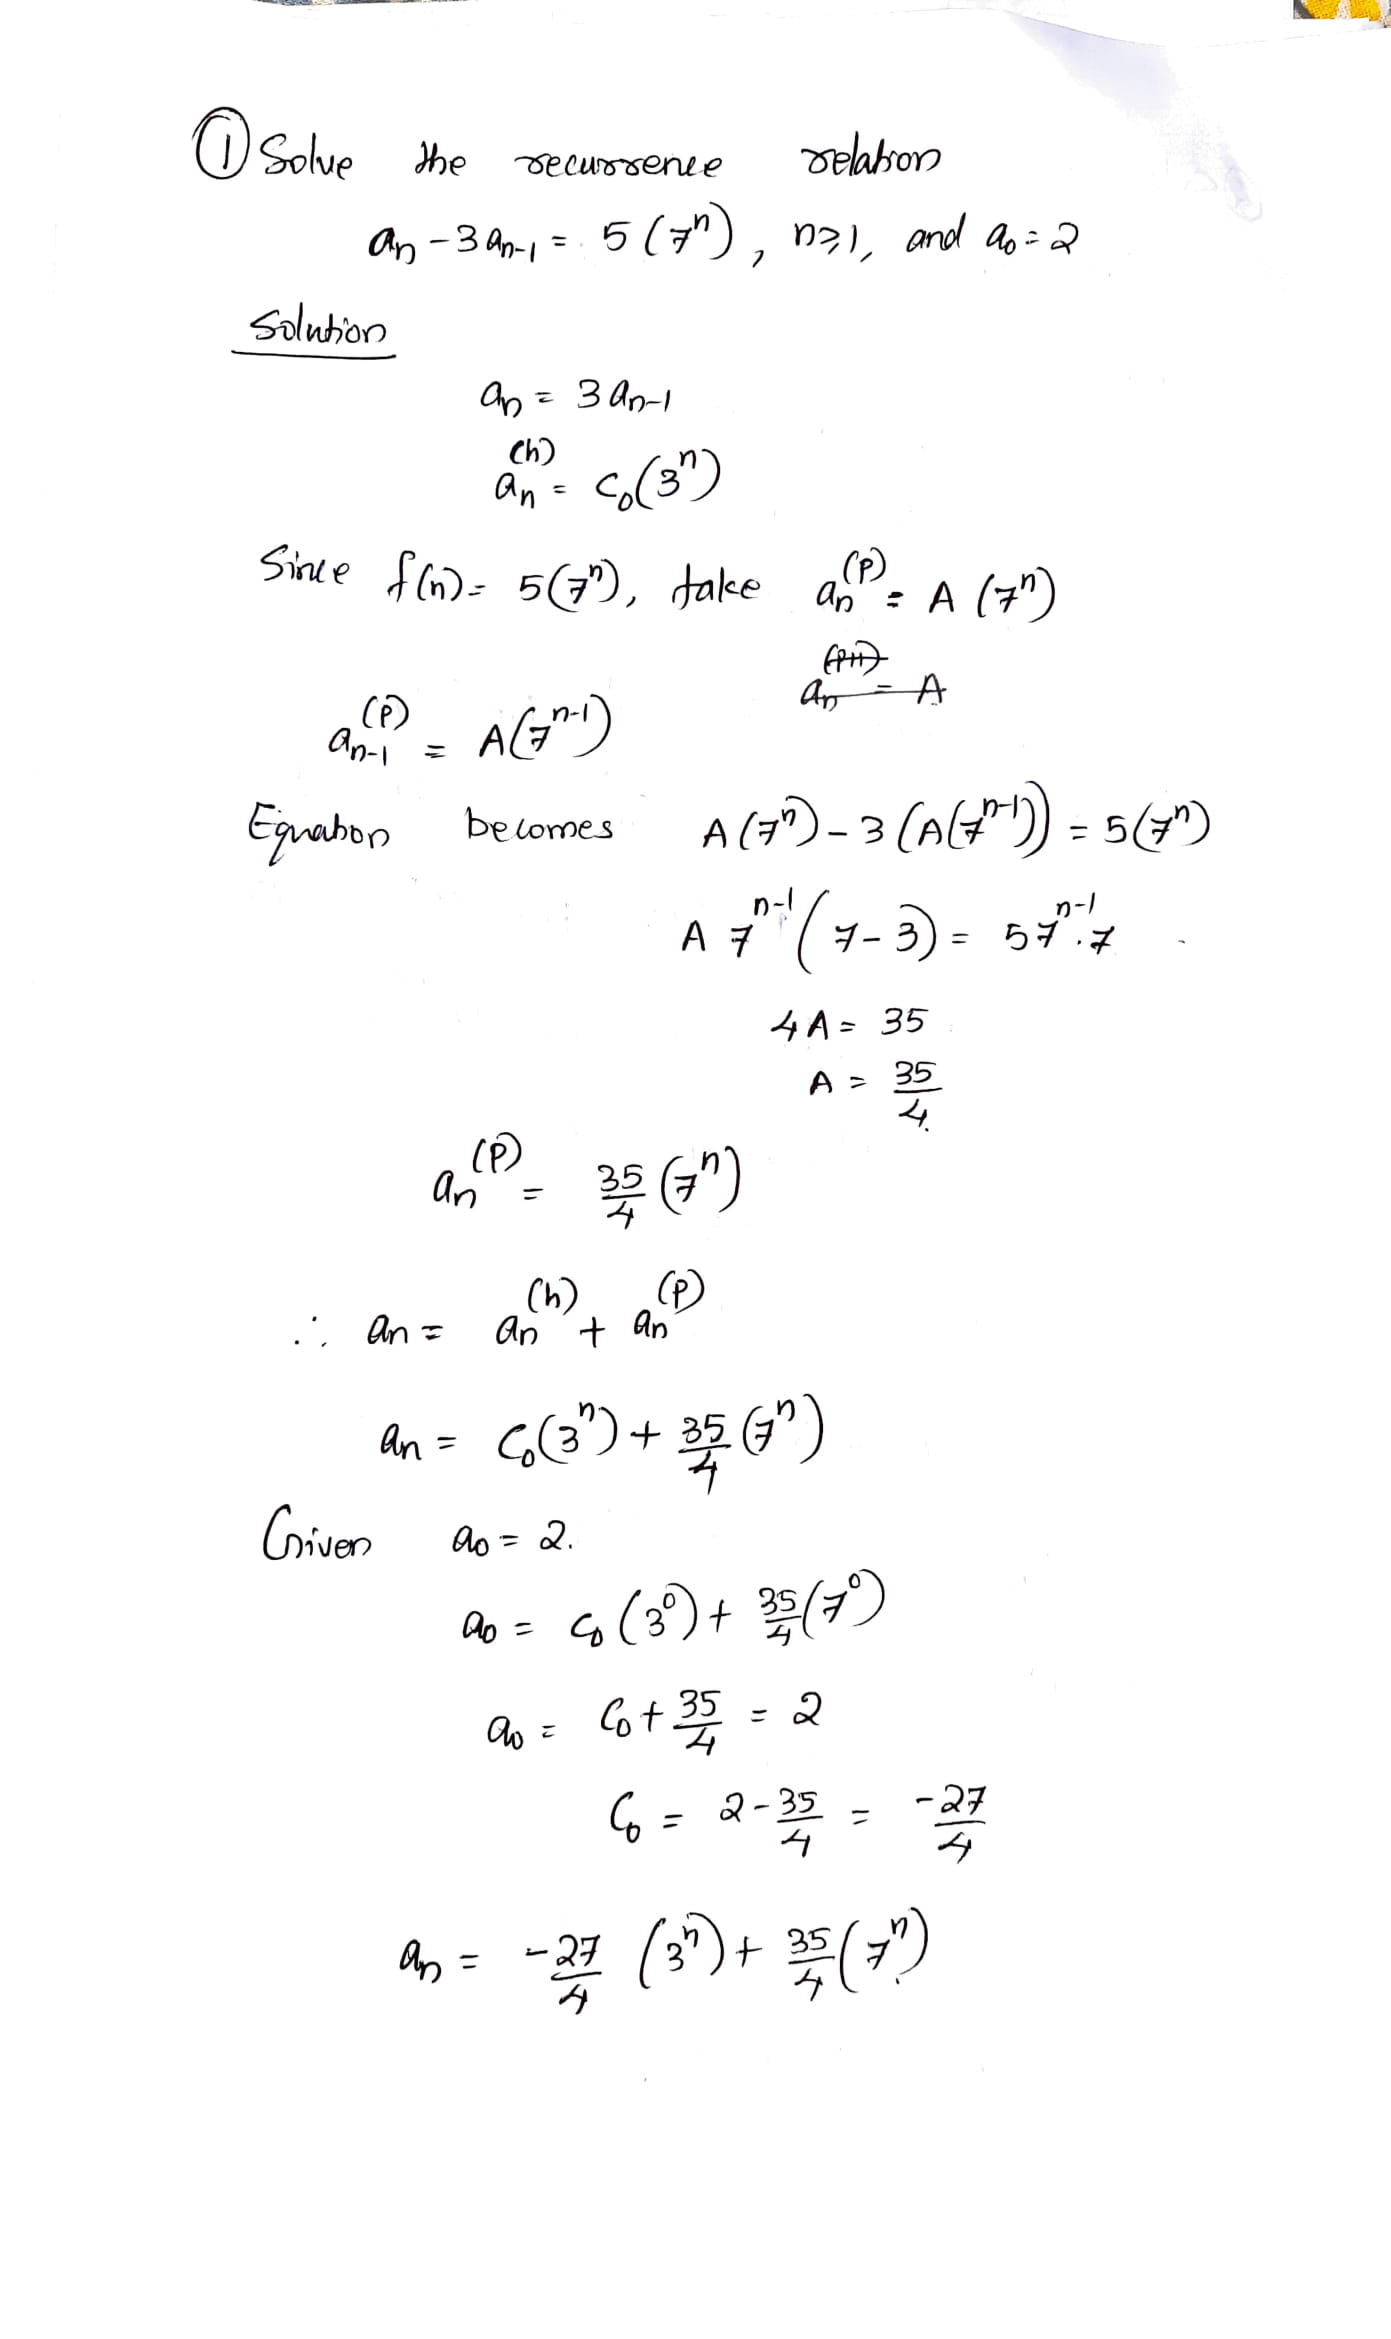 ① Solve the recurrence relation
aₙ - 3aₙ₋₁ = 5(7ⁿ), n≥1, and a₀ = 2
Solution
aₙ = 3aₙ₋₁
aₙ⁽ʰ⁾ = C₀(3ⁿ)
Since f(n) = 5(7ⁿ), take aₙ⁽ᵖ⁾ = A(7ⁿ)
aₙ₋₁⁽ᵖ⁾ = A(7ⁿ⁻¹)
Equation becomes A(7ⁿ) - 3(A(7ⁿ⁻¹)) = 5(7ⁿ)
A 7ⁿ⁻¹(7-3) = 5 7ⁿ⁻¹.7
4A = 35
A = 35/4.
aₙ⁽ᵖ⁾ = 35/4 (7ⁿ)
∴ aₙ = aₙ⁽ʰ⁾ + aₙ⁽ᵖ⁾
aₙ = C₀(3ⁿ) + 35/4 (7ⁿ)
Given a₀ = 2.
a₀ = C₀(3⁰) + 35/4 (7⁰)
a₀ = C₀ + 35/4 = 2
C₀ = 2 - 35/4 = -27/4
aₙ = -27/4 (3ⁿ) + 35/4 (7ⁿ)